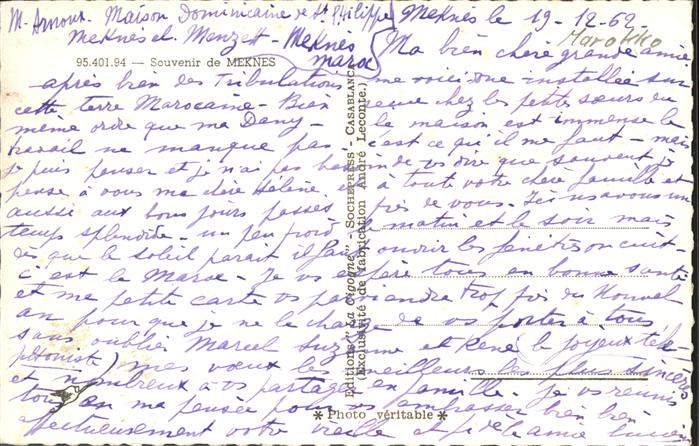 M. Arnoux. Maison Dominicaine de St Philippe Meknès le 19-12-62
Meknès el Menzeh - Meknes Maroc
Marokko
95.401.94 — Souvenir de MEKNES
Ma bien chère grande amie
après bien des Tribulations me voici une installée sur
cette terre Marocaine - Bien reçue chez les petites sœurs du
même ordre que ma Dany - la maison est immense le
travail ne manque pas - c'est ce qu'il me faut - mais
je puis penser et je n'ai pas besoin de vs dire que souvent je
pense à vous ma chère Hélène à toute votre chère famille et
aussi aux bons jours passés près de vous. Ici ns avons un
temps splendide - un peu froid le matin et le soir mais
dès que le soleil parait il faut ouvrir les fenêtres on cuit -
c'est le Maroc - Je vs espère tous en bonne santé
et ma petite carte vs parviendra trop près du Nouvel
an pour que je ne la charge de vs porter à tous
sans oublier Marcel Suzanne et René (le joyeux télé-
phoniste) mes vœux les meilleurs les plus sincères
et nombreux à vs partager en famille. Je vs réunis
tous en ma pensée pour vs embrasser bien bien
affectueusement votre vieille et de la amie
Editions "La Cigogne" - SOCHEPRESS - CASABLANCA
Exclusivité de fabrication André Leconte
* Photo véritable *